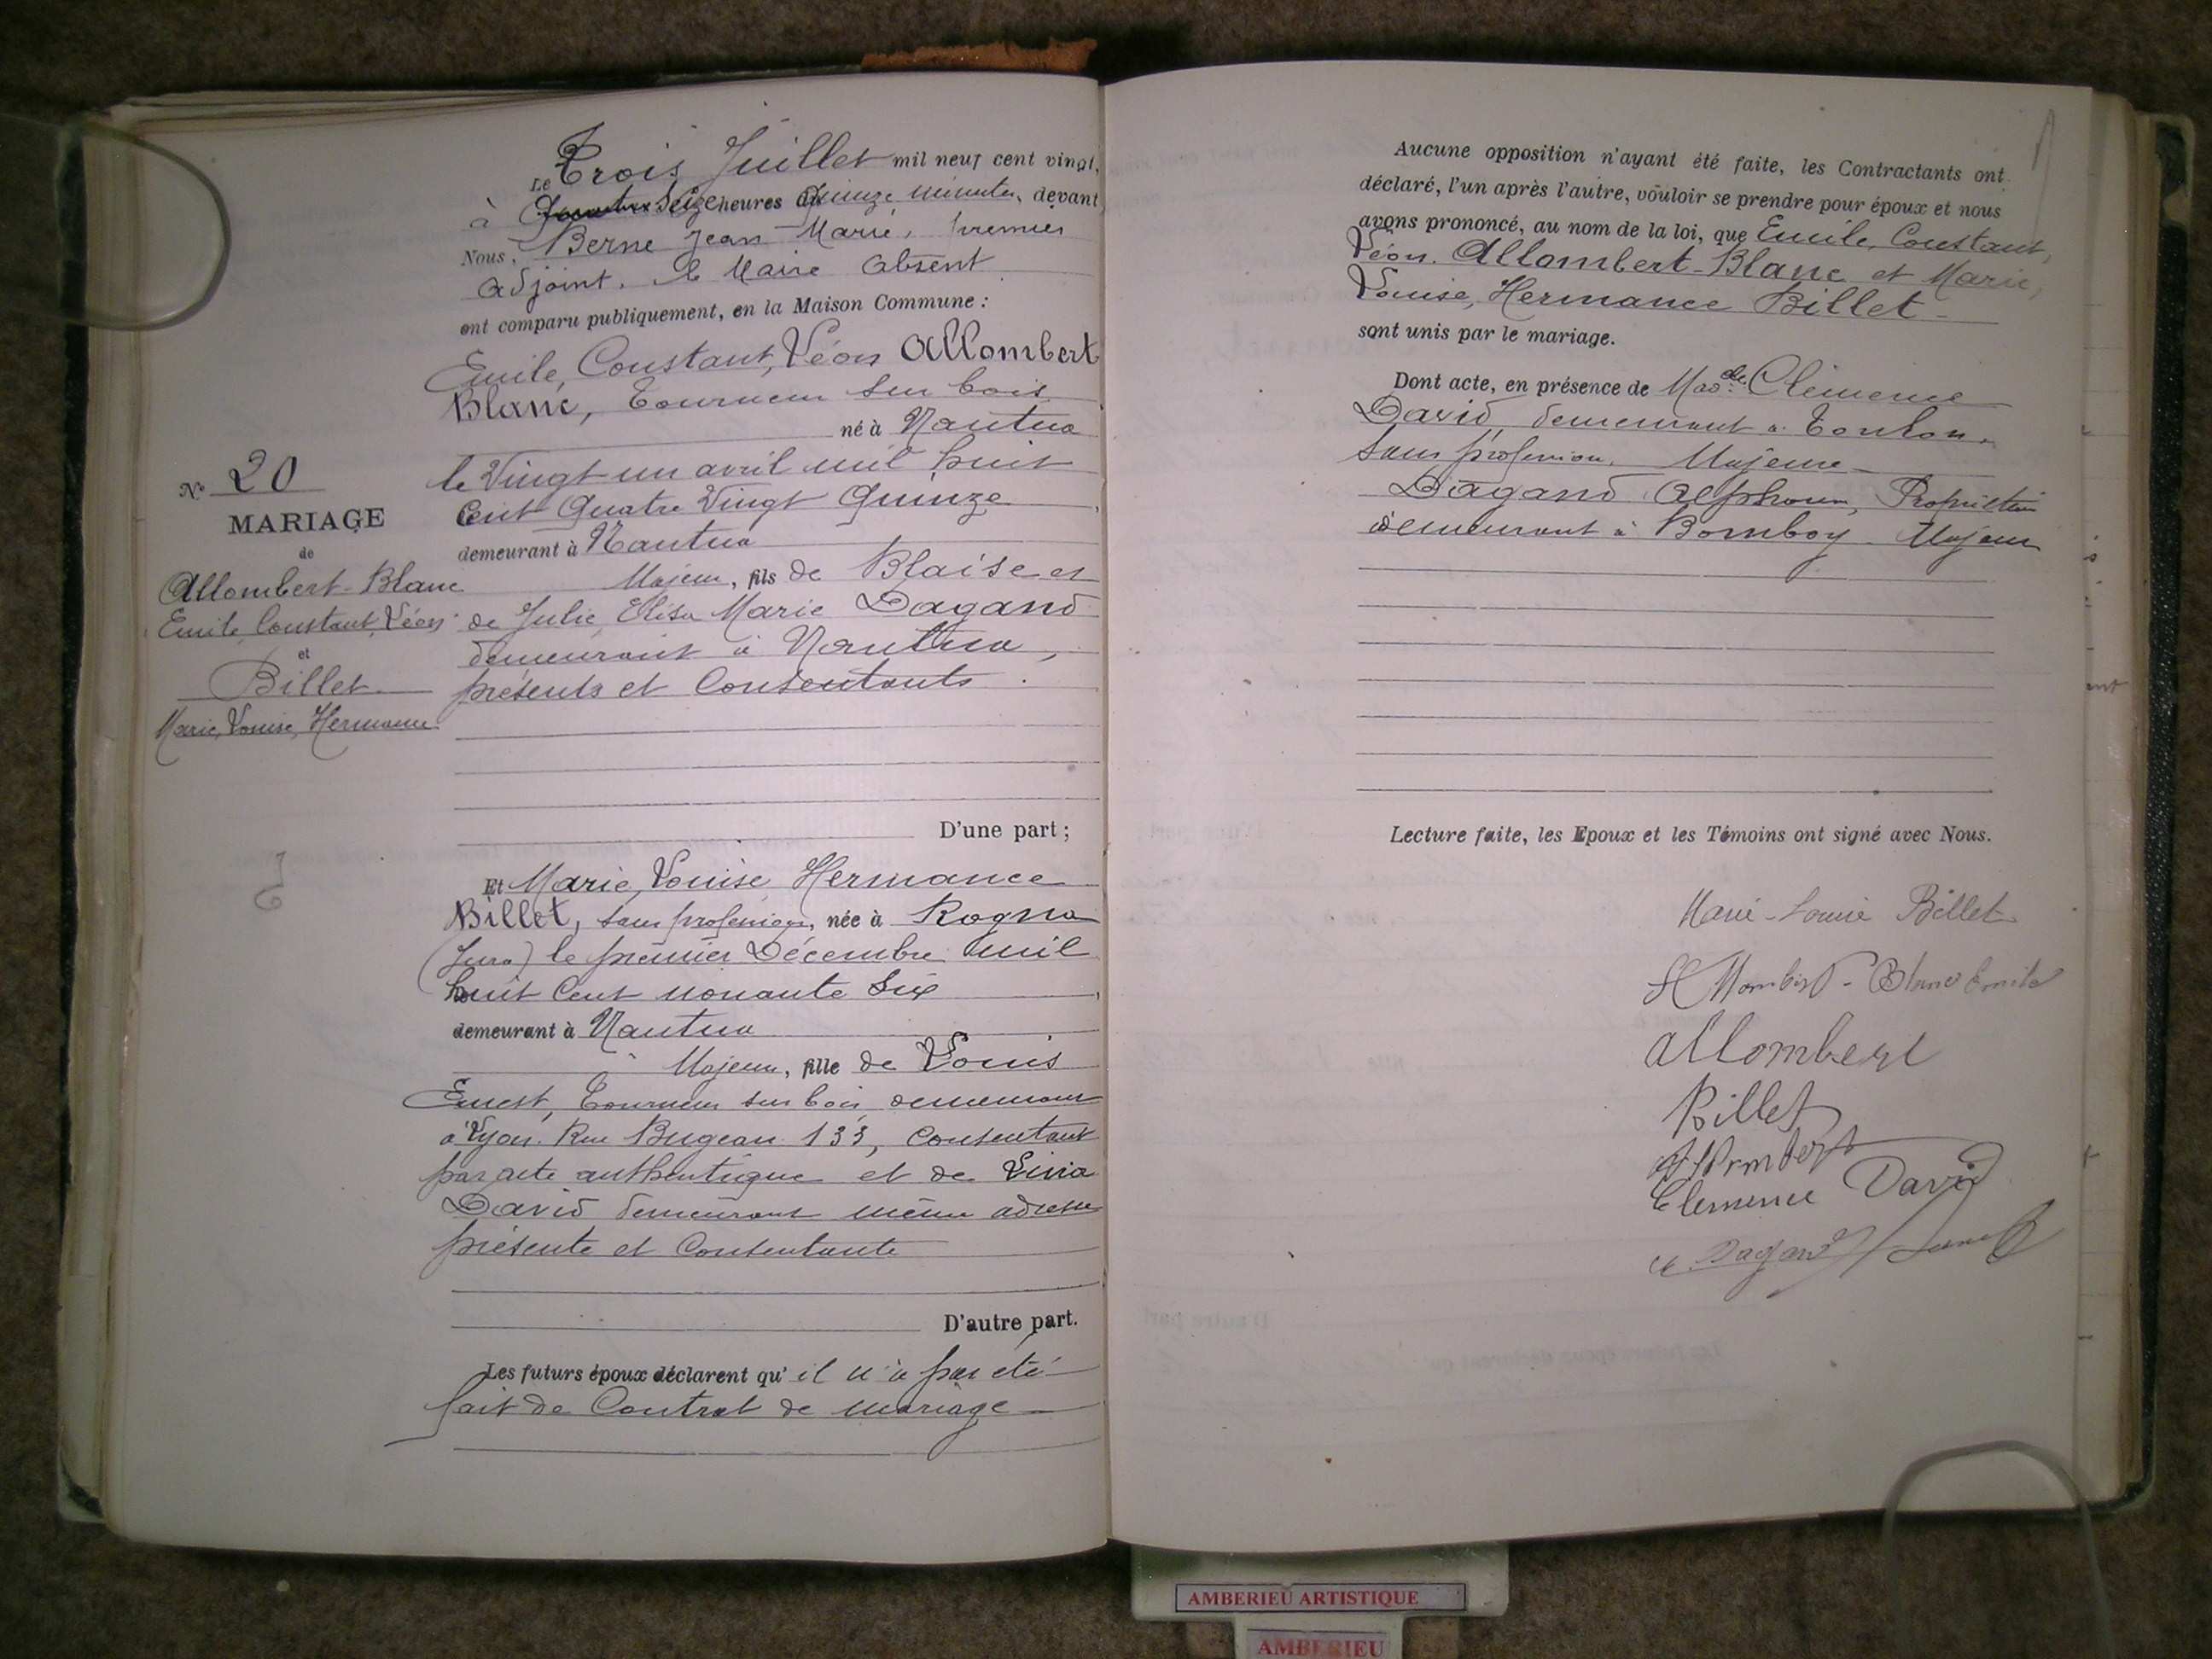 Le Trois Juillet mil neuf cent vingt,
à Seize heures Quinze minutes, devant
Nous, Berne Jean Marie, premier
adjoint, le Maire absent
ont comparu publiquement, en la Maison Commune :
Emile, Constant, Léon Allombert
Blanc, Tourneur sur bois
né à Nantua
le Vingt un avril mil huit
Cent Quatre Vingt Quinze
demeurant à Nantua
Majeur, fils de Blaise et
de Julie, Elisa Marie Dagand
demeurant à Nantua,
présents et Consentants.
D'une part ;
N° 20
MARIAGE
de
Allombert-Blanc
Emile, Constant, Léon
et
Billet
Marie, Louise, Hermance
Et Marie, Louise Hermance
Billet, sans profession, née à Rogna
(Jura) le premier Décembre mil
huit Cent nonante Six
demeurant à Nantua
Majeur, fille de Louis
Ernest, Tourneur sur bois demeurant
à Lyon Rue Bugeau 133, Consentant
par acte authentique et de Livia
David demeurant même adresse
présente et Consentante
D'autre part.
Les futurs époux déclarent qu'il n'a pas été
fait de Contrat de mariage
Aucune opposition n'ayant été faite, les Contractants ont
déclaré, l'un après l'autre, vouloir se prendre pour époux et nous
avons prononcé, au nom de la loi, que Emile, Constant,
Léon Allombert-Blanc et Marie,
Louise, Hermance Billet
sont unis par le mariage.
Dont acte, en présence de Clémence
David, demeurant à Toulon,
Sans profession. Majeure
Dagand Alphonse, Propriétaire
demeurant à Bomboy Majeur
Lecture faite, les Epoux et les Témoins ont signé avec Nous.
Marie-Louise Billet
Allombert-Blanc Emile
Allombert
Billet
Allombert
Clemence David
Dagand
AMBERIEU ARTISTIQUE
AMBERIEU